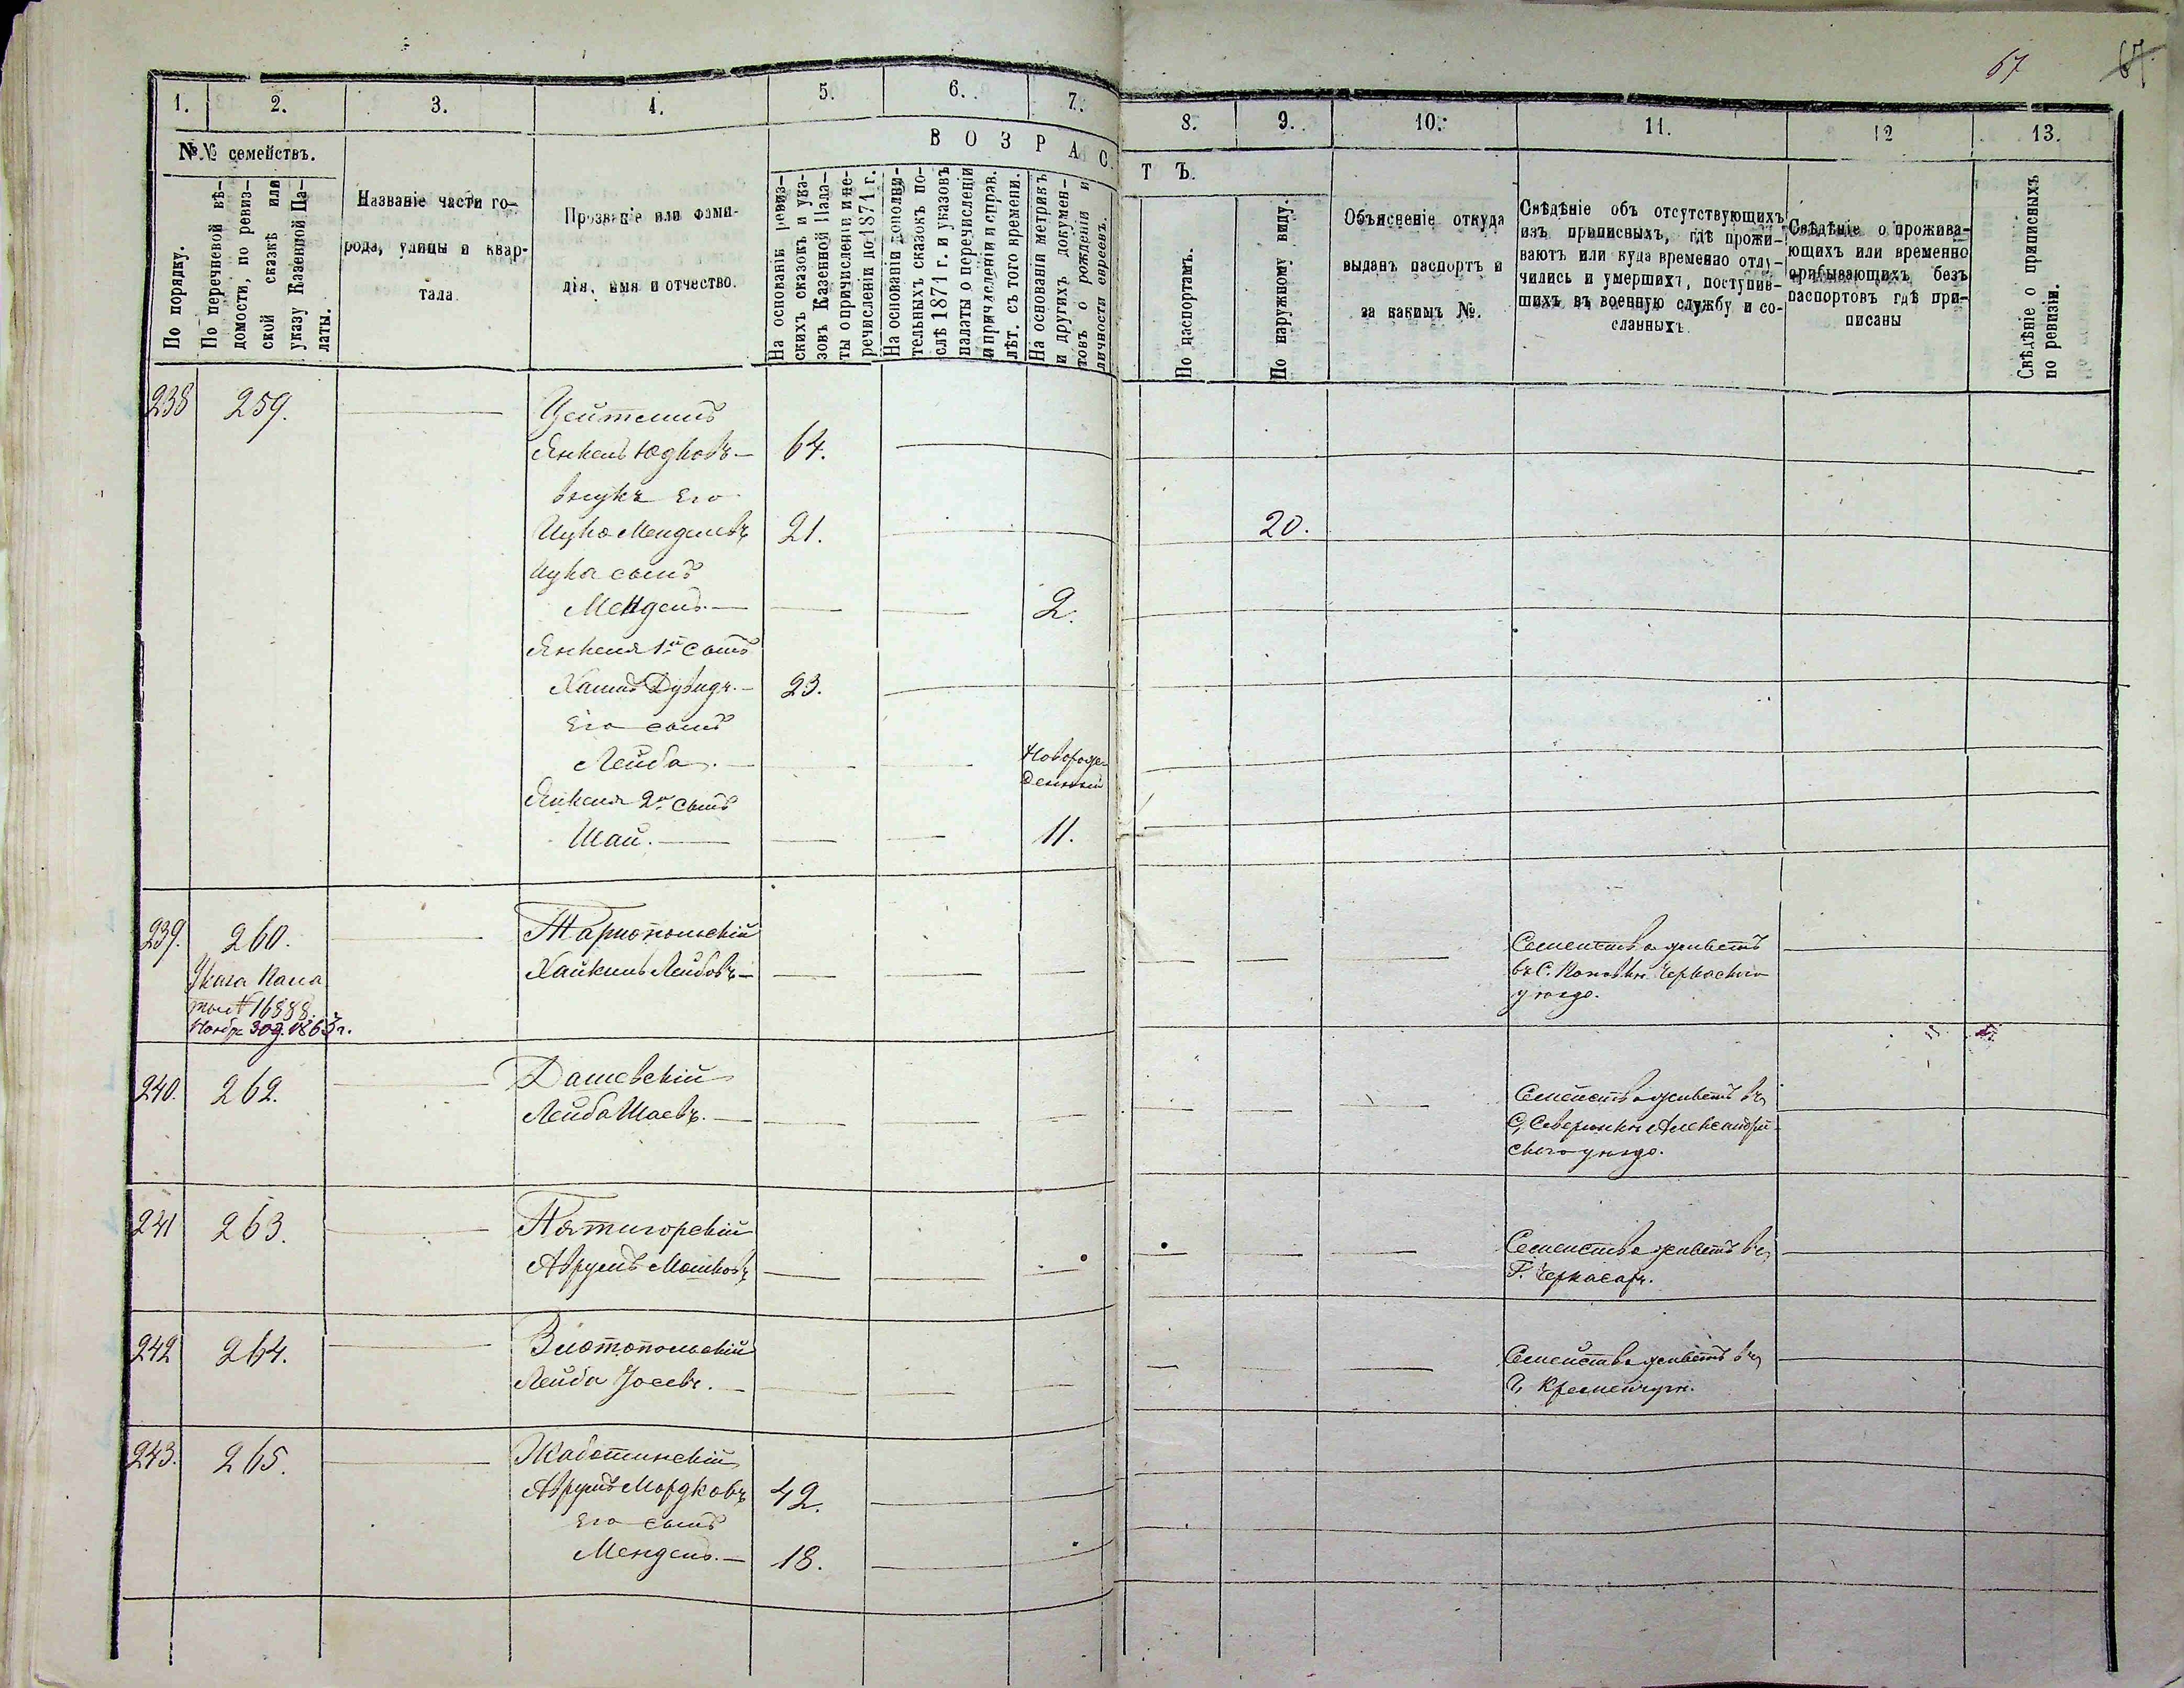 67
67
1.
2.
3.
4.
5.
6.
7.
8.
9.
10.
11.
12
13.
№№ семействъ.
По порядку.
По перечневой вѣ-
домости, по ревиз-
ской сказкѣ или
указу Казенной Па-
латы.
Названіе части го-
рода, улицы и квар-
тала
Прозваніе или фами-
лія, имя и отчество.
ВОЗРАС
ТЪ.
На основаніи ревиз-
скихъ сказокъ и ука-
зовъ Казенной Пала-
ты о причисленіи и пе-
речисленіи до 1871 г.
На основаніи дополни-
тельныхъ сказокъ по-
слѣ 1871 г. и указовъ
палаты о перечисленіи
и причисленіи и справ.
лѣт. съ того времени.
На основаніи метрикъ
и другихъ докумен-
товъ о рожденіи и
личности евреевъ.
По паспортамъ.
По наружному виду.
Объясненіе откуда
выданъ паспортъ и
за какимъ №.
Свѣдѣніе объ отсутствующихъ
изъ приписныхъ, гдѣ прожи-
ваютъ или куда временно отлу-
чились и умершихъ, поступив-
шихъ въ военную службу и со-
сланныхъ
Свѣдѣніе о прожива-
ющихъ или временно
прибывающихъ безъ
паспортовъ гдѣ при-
писаны
Свѣдѣніе о приписныхъ
по ревизіи.
238 259. Цейтлинъ
Янкель Юдковъ — 64.
внукъ Его
Ицко Менделевъ 21. 20.
Ицка сынъ
Мендель. — 2.
Янкеля 1й сынъ
Хаимъ Дувидъ. — 23.
Его сынъ
Лейба. — Новорож-
денный
Янкеля 2й сынъ
Шай. — 11.
239. 260. Тарнопольскій Семейство живетъ
Указа Пала Хайкель Лейбовъ — въ С. Поповки Черкаскаго
ты № 16888. уѣзда.
Ноябр 30 д. 1863 г.
240. 262. Дашевскій Семейство живетъ въ
Лейба Шаевъ. — С. Северинки Александрій-
скаго уѣзда.
241 263. Пятигорскій Семейство живетъ въ
Аврумъ Мошковъ Г. Черкасахъ.
242 264. Златопольскій Семейство живетъ въ
Лейба Іосевъ. — Г. Кременчугѣ.
243. 265. Жаботинскій
Аврумъ Мордковъ 42.
Его сынъ
Мендель. — 18.